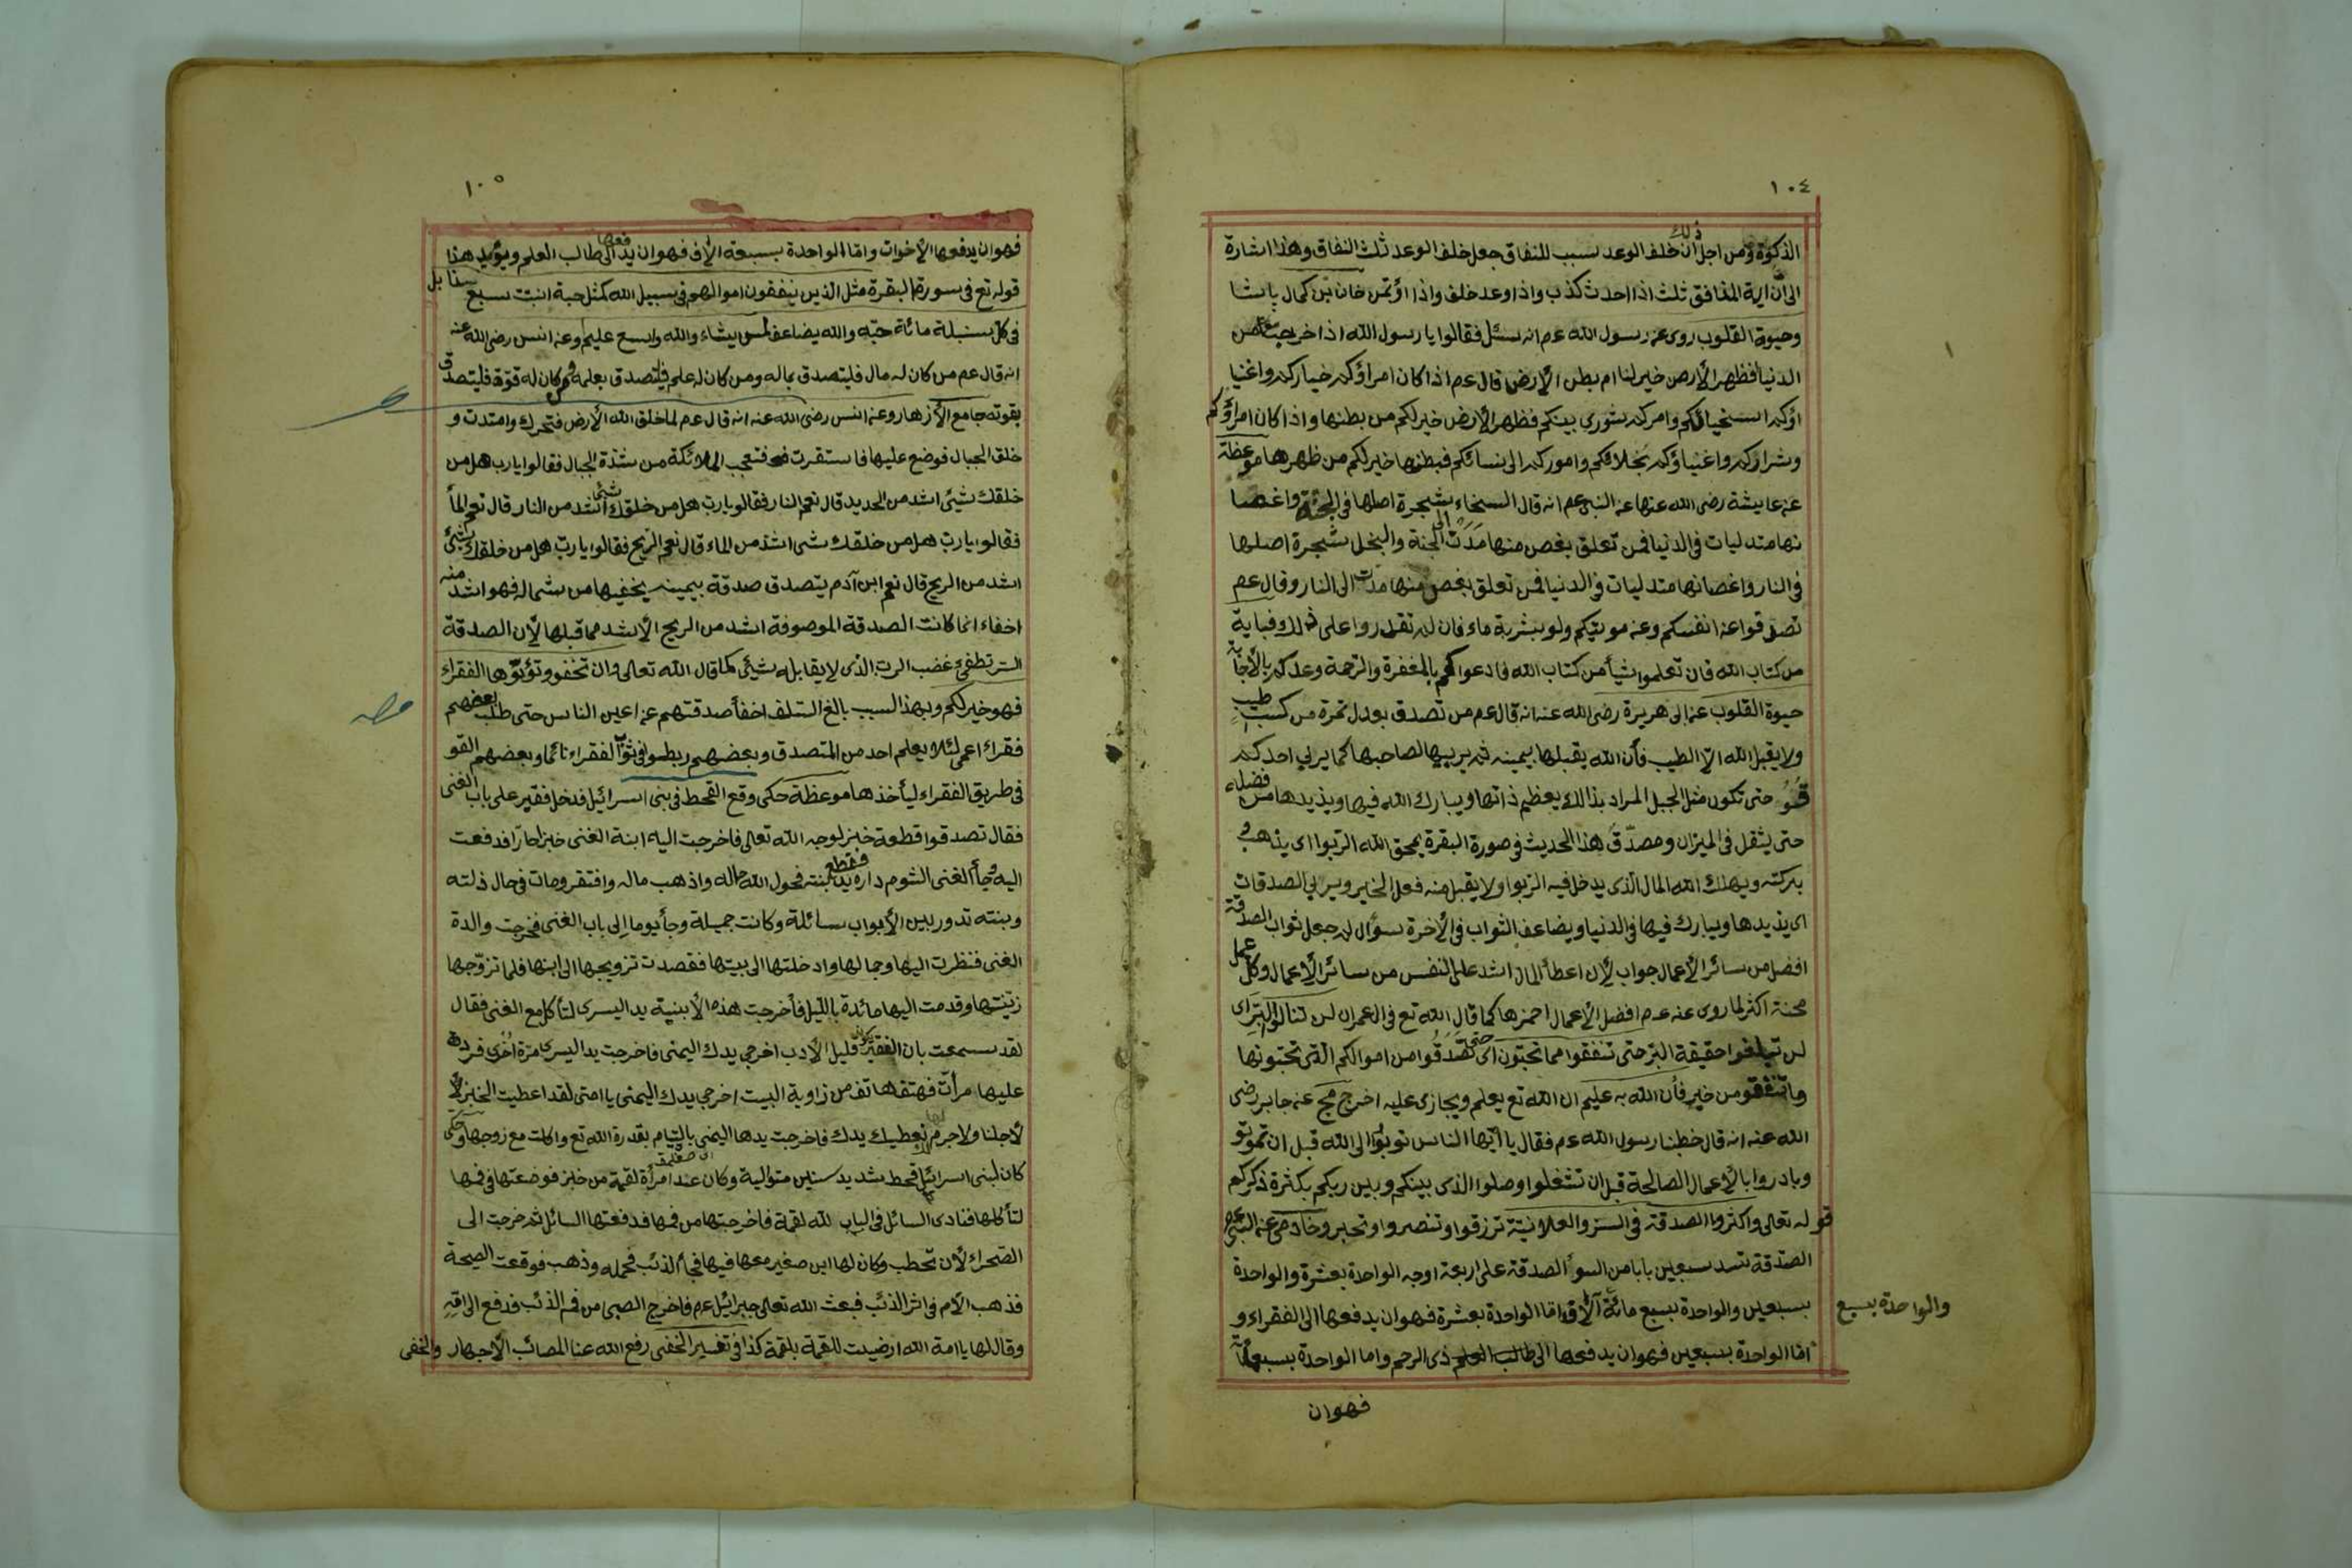 ١٠٤
الذكوة ومن اجل ذلك ان خلف الوعد سبب للنفاق جعل خلف الوعد ثلث النفاق وهذا اشارة
الى ان اية المنافق ثلث اذا احدث كذب واذا وعد خلف واذا اؤتمن خان بن كمال باشا
وحيوة القلوب روى عن رسول الله عم انه سئل فقالوا يا رسول الله اذا خرجت من
الدنيا فظهر الأرض خير لنا ام بطن الأرض قال عم اذا كان امراؤكم خياركم واغنيا
ؤكم اسخيائكم وامركم شورى بينكم فظهر الأرض خير لكم من بطنها واذا كان امراؤكم
وشراركم واغنياؤكم بخلائكم واموركم الى نسائكم فبطنها خير لكم من ظهرها موعظة
عن عايشة رضى الله عنها عن النبى عم انه قال السخاء شجرة اصلها فى الجنة واغصا
نها متدليات فى الدنيا فمن تعلق بغصن منها مدت الى الجنة والبخل شجرة اصلها
فى النار واغصانها متدليات فى الدنيا فمن تعلق بغصن منها مدت الى النار وقال عم
تصدقوا عن انفسكم وعن موتيكم ولو بشربة ماء فان لم تقدروا على ذلك فباية
من كتاب الله فان تعلموا شيأ من كتاب الله فادعوا لهم بالمغفرة والرحمة وعدكم بالأجابة
حيوة القلوب عن ابى هريرة رضى الله عنه انه قال عم من تصدق بعدل تمرة من كسب طيب
ولا يقبل الله الا الطيب فأن الله يقبلها بيمينه ثم يربيها لصاحبها كما يربي احدكم
حتى تكون مثل الجبل المراد بذالك يعظيم ذاتها ويبارك الله فيها ويذيدها من فضله
حتى يثقل فى الميزان ومصدق هذا الحديث فى صورة البقرة يمحق الله الربوا اى يذهب
بركته ويهلك الله المال الذى يدخل فيه الربوا ولا يقبل منه فعل الخير ويربي الصدقات
اى يذيدها ويبارك فيها فى الدنيا ويضاعف الثواب فى الأخرة سؤال لم جعل ثواب الصدقة
افضل من سائر الأعمال جواب لأن اعطأ المال اشد على النفس من سائر الأعمال وكل عمل
محنة اكثر لما روى عنه عم افضل الأعمال احمزها كما قال الله تع فى العمران لن تنالوا البر اى
لن تبلغوا حقيقة البر حتى تنفقوا مما تحبون اى حتى تصدقوا من اموالكم التى تحبونها
وما تنفقو من خير فأن الله به عليم ان الله تع يعلم ويجازى عليه اخرج مج عن جابر رضى
الله عنه انه قال خطبنا رسول الله عم فقال يا ايها الناس توبوا الى الله قبل ان تموتو
وبادروا بالأعمال الصالحة قبل ان تشغلوا وصلوا الذى بينكم وبين ربكم بكثرة ذكركم
له تعالى واكثروا الصدقة فى السر والعلانية ترزقوا وتنصروا وتجبروا عن النبى عم
الصدقة تسد سبعين بابا من السوأ الصدقة على اربعة اوجه الواحدة بعشرة والواحدة
بسبعين والواحدة بسبع مائة آلاف اما الواحدة بعشرة فهو ان يدفعها الى الفقراء و
والواحدة بسبع
اما الواحدة بسبعين فهو ان يدفعها الى ذى الرحم واما الواحدة بسبعمائة
فهوان
١٠٥
فهو ان يدفعها الأخوات واما الواحدة بسبعة الأف فهو ان يدفعها الى طالب العلم ويؤيد هذا
قوله تع فى سورة البقرة مثل الذين ينفقون اموالهم فى سبيل الله كمثل حبة انبت سبع سنابل
فى كل سنبلة مائة حبة والله يضاعف لمن يشاء والله واسع عليم وعن انس رضى الله عنه
انه قال عم من كان له مال فليتصدق بماله ومن كان له علم فليتصدق بعلمه ومن كان له قوة فليتصدق
بقوته جامع الأزهار وعن انس رضى الله عنه انه قال عم لما خلق الله الأرض فتحرك وامتدت و
خلق الجبال فوضع عليها فاستقرت فتعجب الملائكة من شدة الجبال فقالوا يا رب هل من
خلقك شيئ اشد من الحديد قال نعم النار فقالو يا رب هل من خلقك شيئ اشد من النار قال نعم المأ
فقالوا يا رب هل من خلقك شى اشد من الماء قال نعم الريح فقالوا يا رب هل من خلقك شيئ
اشد من الريح قال نعم ابن آدم يتصدق صدقة بيمينه يخفيها من شماله فهو اشد منه
اخفاء انما كانت الصدقة الموصوفة اشد من الريح الأشد مما قبلها لأن الصدقة
السر تطفئ غضب الرب الذى لا يقابله شيئ كما قال الله تعالى وان تخفو وتؤتوها الفقراء
فهو خير لكم وبهذا السبب بالغ السلف اخفأ صدقتهم عن اعين الناس حتى طلب بعضهم
فقراء اعمى لئلا يعلم احد من المتصدق وبعضهم ربطو فى ثوب الفقراء نائما وبعضهم القو
فى طريق الفقراء ليأخذها موعظة حكى وقع القحط فى بنى اسرائيل فدخل فقير على باب الغنى
فقال تصدقوا قطعة خبز لوجه الله تعالى فاخرجت اليه ابنة الغنى خبزا حارا فدفعت
اليه وجأ الغنى الشوم داره فقطع يد ابنته فحول الله حاله واذهب ماله وافتقر ومات فى حال ذلته
وبنته تدور بين الأبواب سائلة وكانت جميلة وجأ يوما الى باب الغنى فخرجت والدة
الغنى فنظرت اليها وجمالها وادخلتها الى بيتها فقصدت تزويجها الى ابنها فلما تزوجها
زينتها وقدمت اليها مائدة بالليل فأخرجت هذه الأبنية يد اليسرى لتأكل مع الغنى فقال
لقد سمعت بان الفقير يكون قليل الأدب اخرجى يدك اليمنى فاخرجت يد اليسرى مرة اخرى فرده
عليها مرأت فهتف هاتف من زاوية البيت اخرجى يدك اليمنى يا امتى لقد اعطيت الخبز لأ
لأجلنا ولا جرم نعطيك يدك فاخرجت يدها اليمنى بالتمام بقدرة الله تع واكلت مع زوجها وحكى
كان لبنى اسرائيل قحط شديد سنين متوالية وكان عند امرأة لقمة من خبز فوضعتها فى فمها
لتأكلها فنادى السائل فى الباب لله لقمة فاخرجتها من فمها فدفعتها السائل ثم خرجت الى
الصحراء لأن تحطب وكان لها ابن صغير معها فيها فجأ الذئب فحمله وذهب فوقعت الصيحة
فذهب الأم فى اثر الذئب فبعث الله تعالى جبرائيل عم فاخرج الصبى من فم الذئب فدفع الى امه
وقال لها يا امة الله ارضيت للقمة بلقمة كذا فى تفسير الحنفى رفع الله عنا المصائب الأجهار والخفى